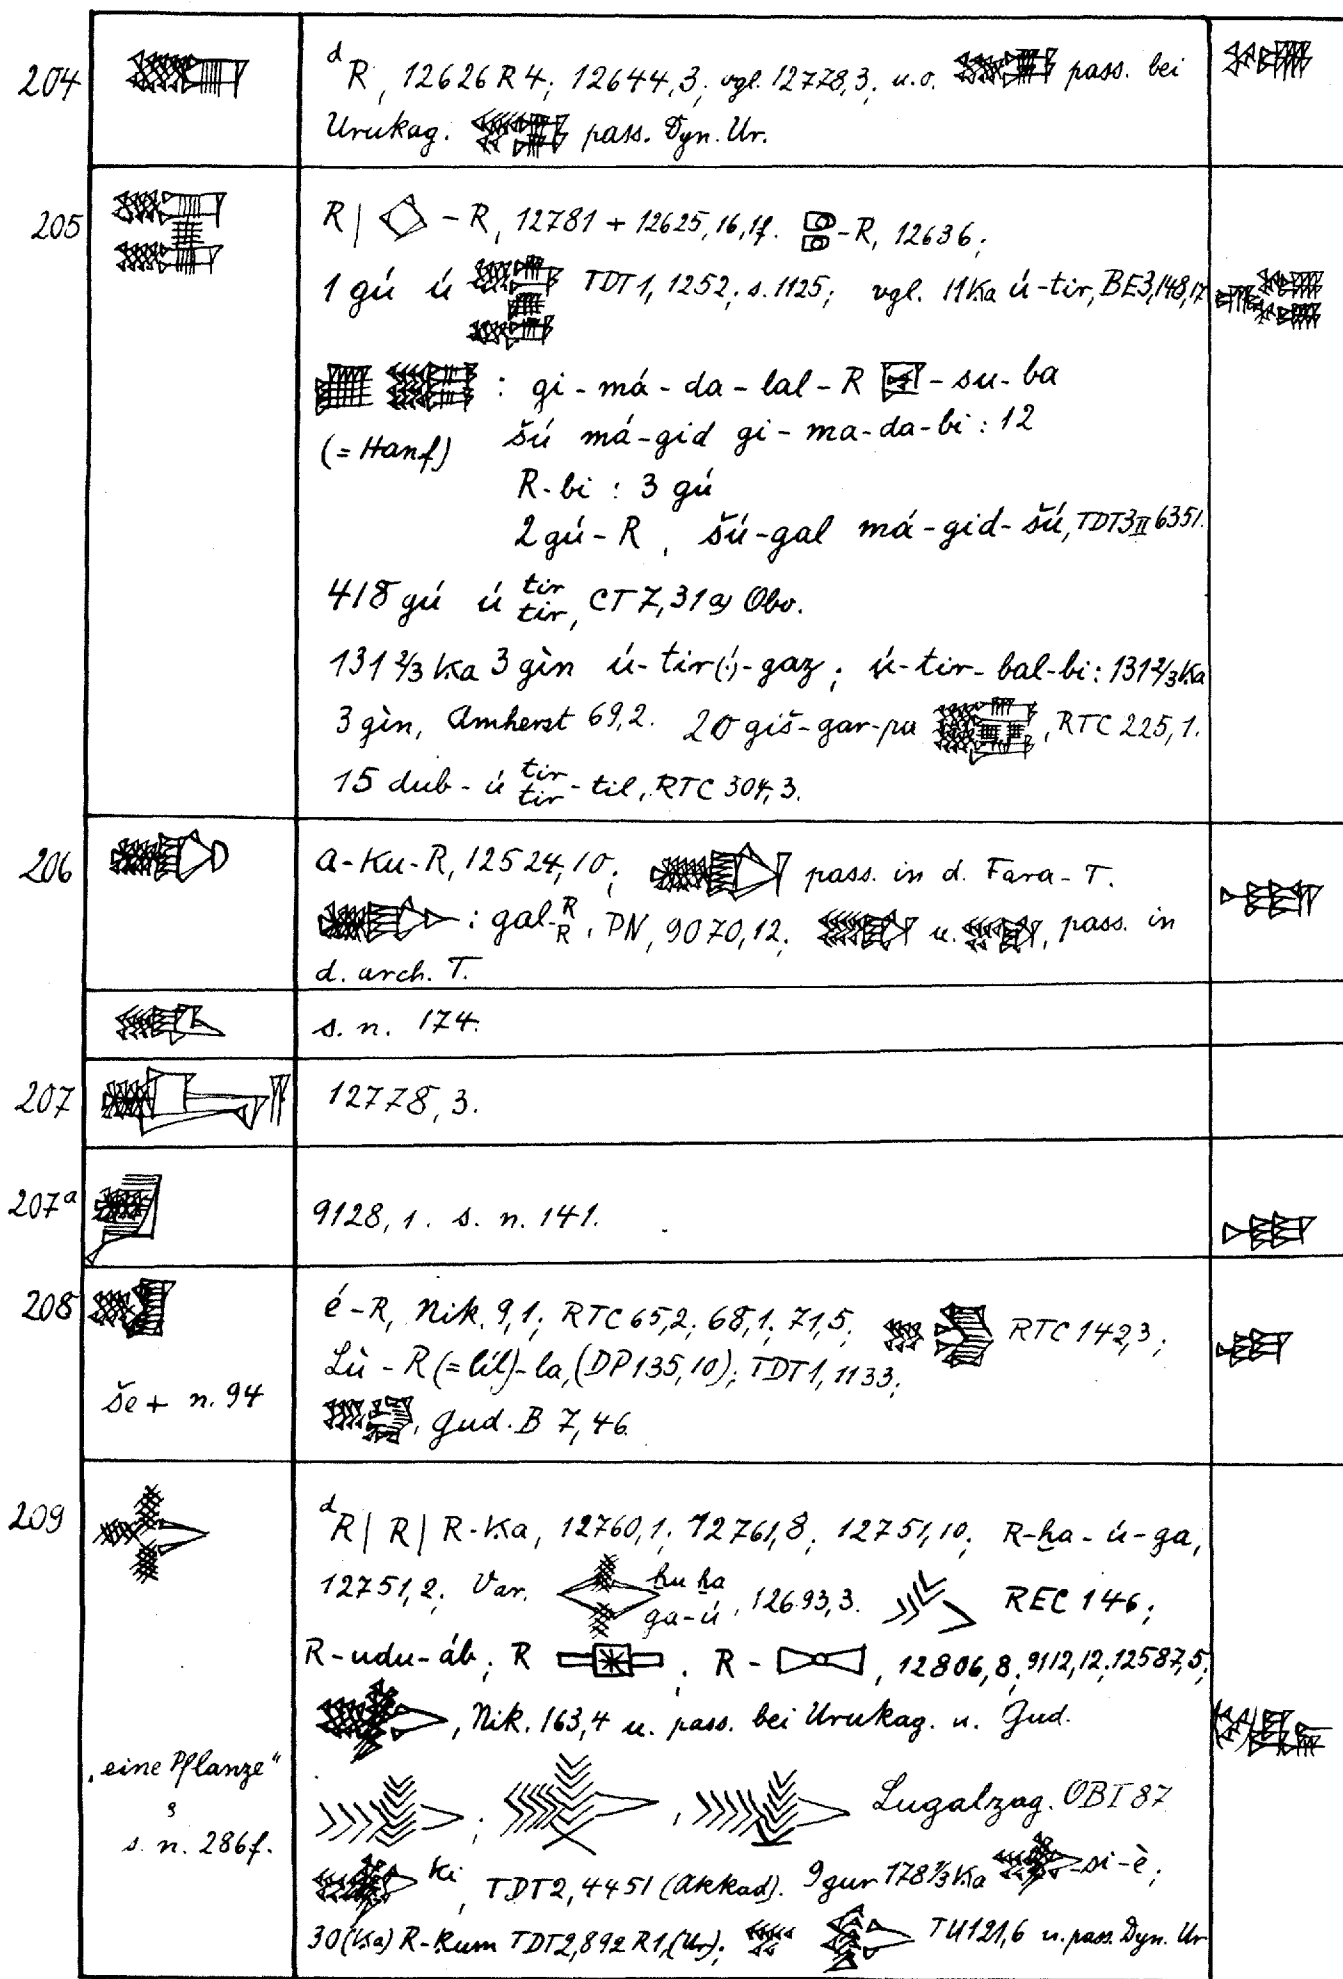 204
ᵈR, 12626 R 4; 12644,3; vgl. 12778,3; u.o. pass. bei
Urukag. pass. Dyn. Ur.
205
R | - R, 12781 + 12625,16,17. -R, 12636;
1 gú ú TDT 1, 1252; s. 1125; vgl. 11 Ka ú-tir, BE3,148,17
: gi-má-da-lal-R -su-ba
(=Hanf) šú má-gíd gi-ma-da-bi : 12
R-bi : 3 gú
2 gú-R, šú-gal má-gid-šú, TDT3 II 6351.
418 gú ú tir tir, CT 7, 31 a) Obv.
131 2/3 Ka 3 gìn ú-tir(!)-gaz; ú-tir-bal-bi: 131 2/3 Ka
3 gìn, Amherst 69,2. 20 giš-gar-pa, RTC 225,1.
15 dub-ú tir tir-til, RTC 304,3.
206
a-Ku-R, 12524,10; pass. in d. Fara-T.
: gal-R R, PN, 9070,12. u. , pass. in
d. arch. T.
s. n. 174.
207
12778,3.
207ᵃ
9128,1. s. n. 141.
208
é-R, Nik. 9,1; RTC 65,2; 68,1; 71,5; RTC 142,3;
Lù-R (=líl)-la, (DP 135,10); TDT 1, 1133;
še + n. 94
, Gud. B 7,46.
209
ᵈR | R | R-Ka, 12760,1; 12761,8; 12751,10; R-ḫa-ú-ga,
12751,2; Var. ḫu ḫa ga-ú, 12693,3. REC 146;
R-udu-áb; R ; R - , 12806,8; 9112,12; 12587,5;
, Nik. 163,4 u. pass. bei Urukag. u. Gud.
„eine Pflanze"
s. n. 286f.
; , Lugalzag. OBI 87
Ki, TDT 2, 4451 (Akkad). 9 gur 178 1/3 Ka si-è;
30 (Ka) R-Kum TDT 2, 892 R1, (Ur); TU 121,6 u. pass. Dyn. Ur